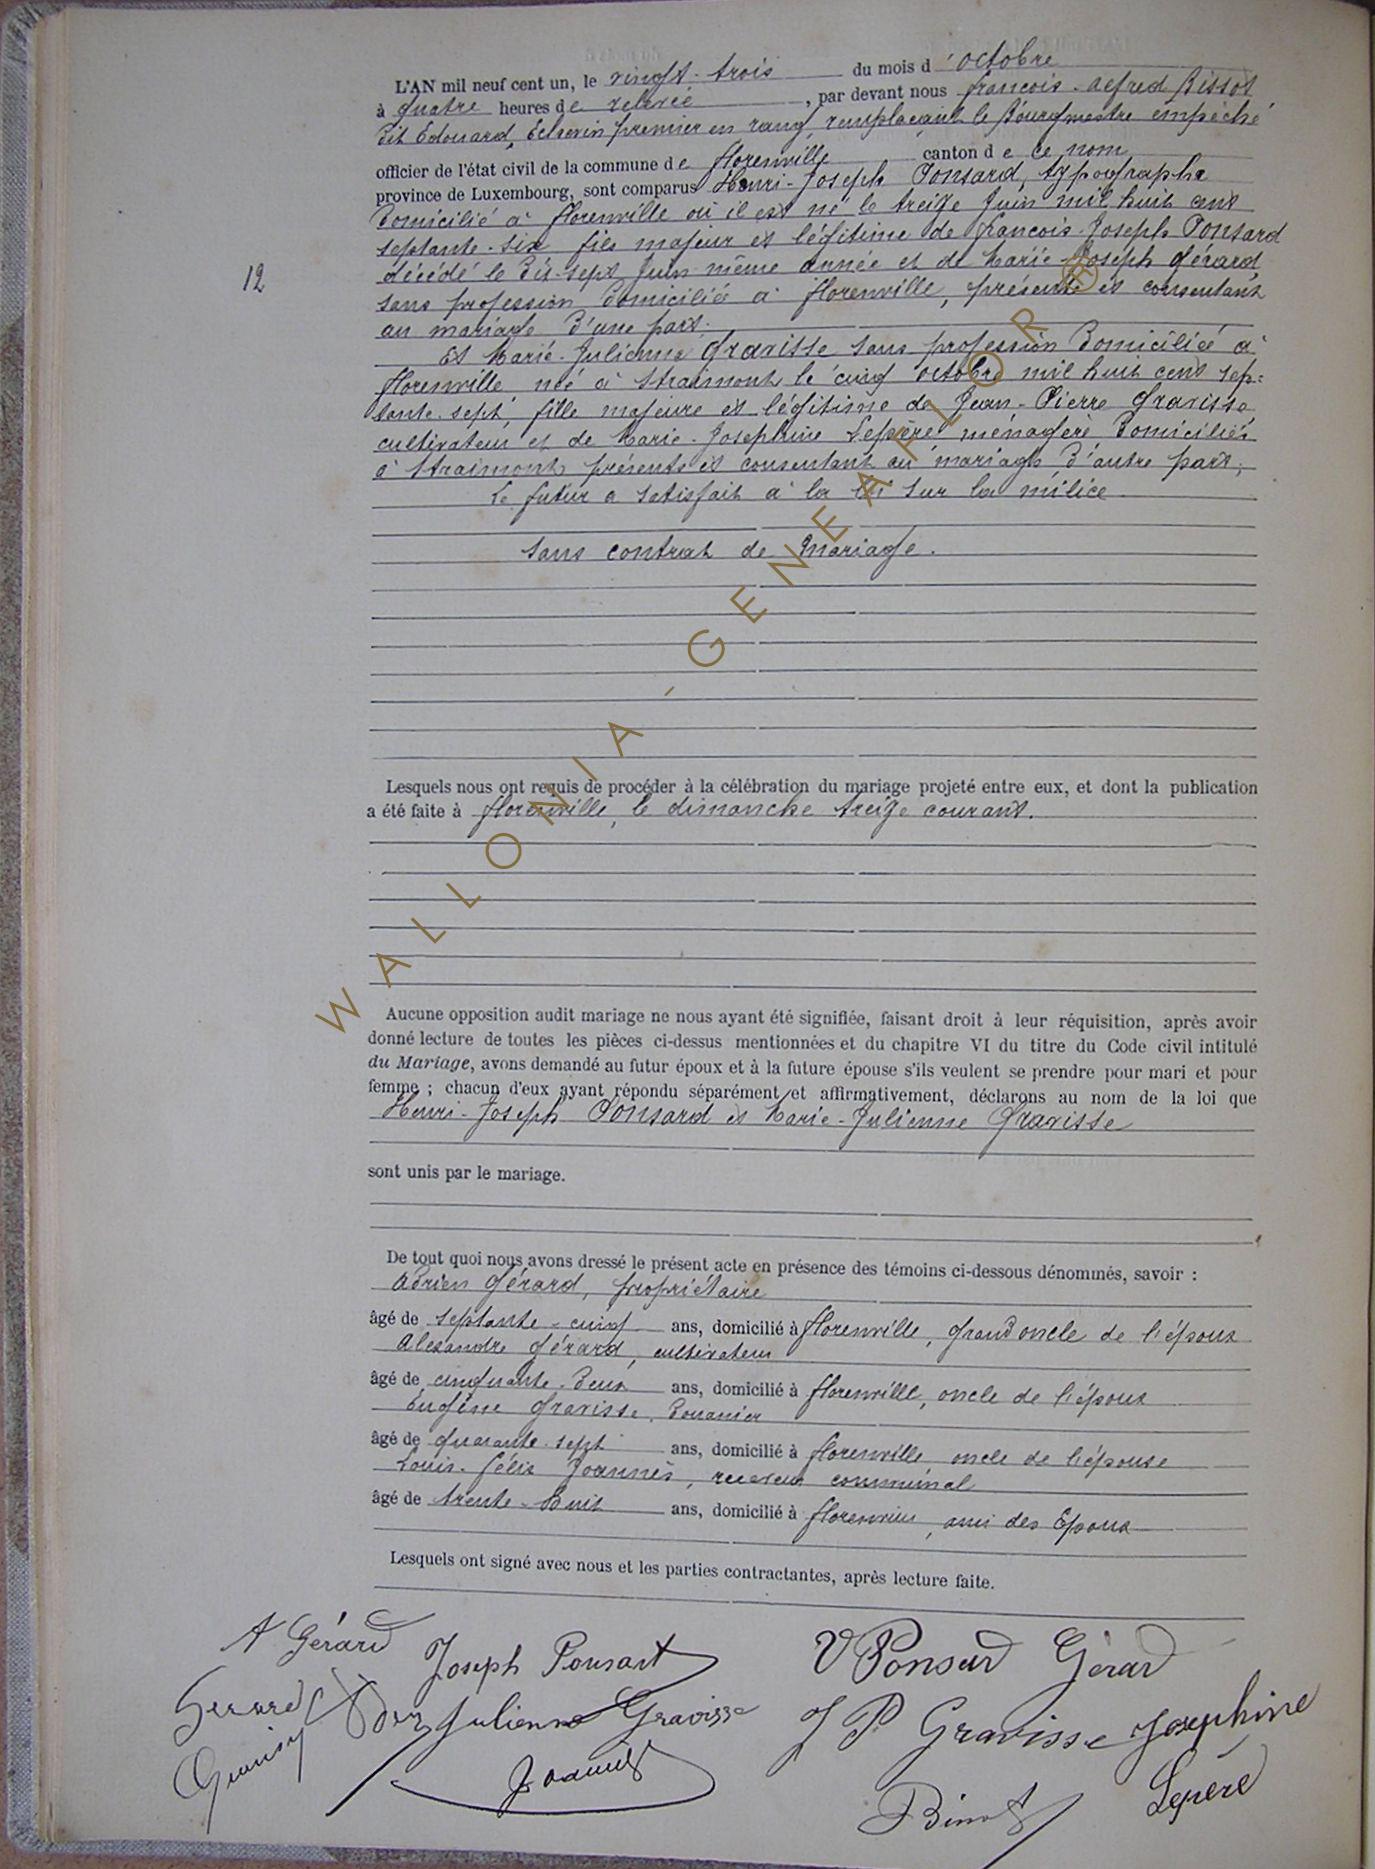 L'AN mil neuf cent un, le vingt-trois du mois d'octobre
à quatre heures de relevée, par devant nous francois-alfred Bissot
dit Edouard, Echevin premier en rang, remplaçant le Bourgmestre empêché
officier de l'état civil de la commune de florenville canton de ce nom
province de Luxembourg, sont comparus Henri-Joseph Ponsard, typographe
domicilié à florenville où il est né le treize Juin mil huit cent
septante-six fils majeur et légitime de francois-Joseph Ponsard
décédé le dix-sept Juin même année et de Marie-Joseph Gérard
12
sans profession domiciliée à florenville, présente et consentant
au mariage d'une part.
Et Marie-Julienne Gravisse sans profession domiciliée à
florenville née à Straimont le cinq octobre mil huit cent sep=
tante-sept, fille majeure et légitime de Jean-Pierre Gravisse
cultivateur et de Marie-Joséphine Lepère ménagère domiciliés
à Straimont présents et consentant au mariage d'autre part;
Le futur a satisfait à la loi sur la milice
Sans contrat de Mariage.
Lesquels nous ont requis de procéder à la célébration du mariage projeté entre eux, et dont la publication
a été faite à florenville, le dimanche treize courant.
Aucune opposition audit mariage ne nous ayant été signifiée, faisant droit à leur réquisition, après avoir
donné lecture de toutes les pièces ci-dessus mentionnées et du chapitre VI du titre du Code civil intitulé
du Mariage, avons demandé au futur époux et à la future épouse s'ils veulent se prendre pour mari et pour
femme ; chacun d'eux ayant répondu séparément et affirmativement, déclarons au nom de la loi que
Henri-Joseph Ponsard et Marie-Julienne Gravisse
sont unis par le mariage.
De tout quoi nous avons dressé le présent acte en présence des témoins ci-dessous dénommés, savoir :
Adrien Gérard, propriétaire
âgé de septante-cinq ans, domicilié à florenville, grand oncle de l'époux
Alexandre Gérard, cultivateur
âgé de cinquante-deux ans, domicilié à florenville, oncle de l'époux
Eugène Gravisse, Douanier
âgé de quarante-sept ans, domicilié à florenville oncle de l'épouse
Louis-félix Joannès, receveur communal
âgé de trente-huit ans, domicilié à florenville, ami des Epoux
Lesquels ont signé avec nous et les parties contractantes, après lecture faite.
A Gérard Joseph Ponsart V Ponsard Gérard
Gerard Julienne Gravisse J P Gravisse Josephine
Joannès Lepère
WALLONIA - GENEAFLOR ®